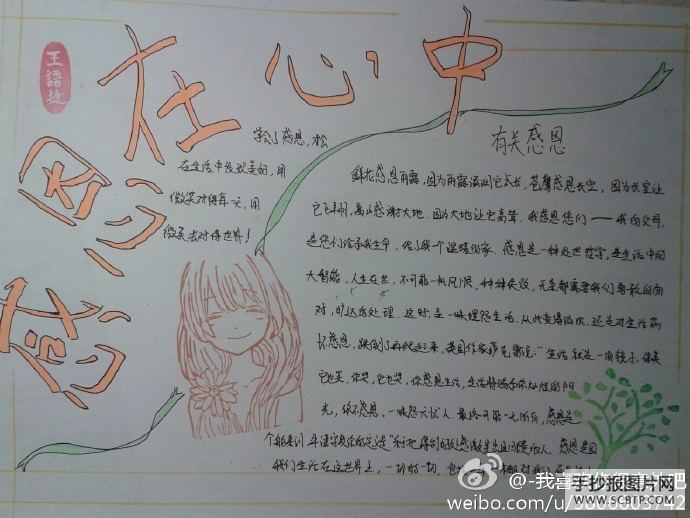 感恩在心中
王語捷
学会了感恩,
在生活中发现美的,用
微笑对待每一天,用
微笑去对待世界!
有关感恩
鲜花感恩雨露,因为雨露滋润它成长,苍鹰感恩长空,因为长空让
它飞翔,高山感谢大地,因为大地让它高耸,我感恩您们——我的父母,
是您们给予我生命,给了我一个温暖的家。感恩是一种处世哲学,是生活中的
大智慧,人生在世,不可能一帆风顺,种种失败,无奈都需要我们勇敢的面
对,旷达的处理。这时,是一味埋怨生活,从此变得消沉,还是对生活满
怀感恩,跌倒了再爬起来。英国作家萨克雷说:"生活就是一面镜子,你笑
它也笑,你哭,它也哭。你感恩生活,生活将赐予你灿烂的阳
光,你不感恩,一味怨天尤人,最终可能一无所有,感恩是
感恩是因
我们生活在这世界上,一切的一切,包括
@-我喜欢的
weibo.com/u/
手抄报图片网
WWW.SCBTP.COM